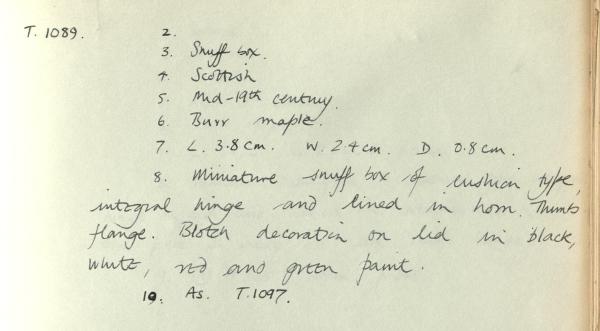 T. 1089. 2.
3. Snuff box.
4. Scottish
5. Mid-19th century.
6. Burr maple.
7. L. 3.8cm. W. 2.4cm. D. 0.8cm.
8. Miniature snuff box of cushion type,
integral hinge and lined in horn. Thumb
flange. Blotch decoration on lid in black,
white, red and green paint.
19. As. T.1097.